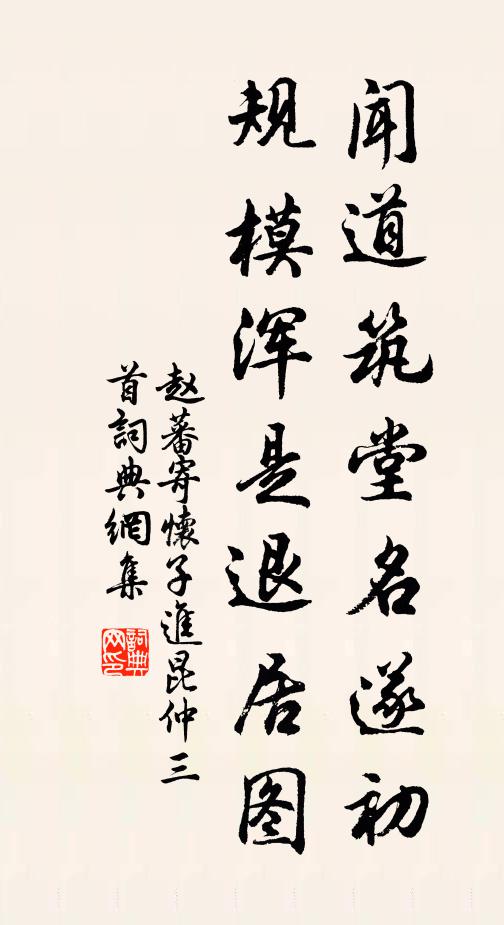 闻道筑堂名遂初
规模浑是退居图
赵蕃寄懷子進昆仲三
首詞典網集
詞典网印